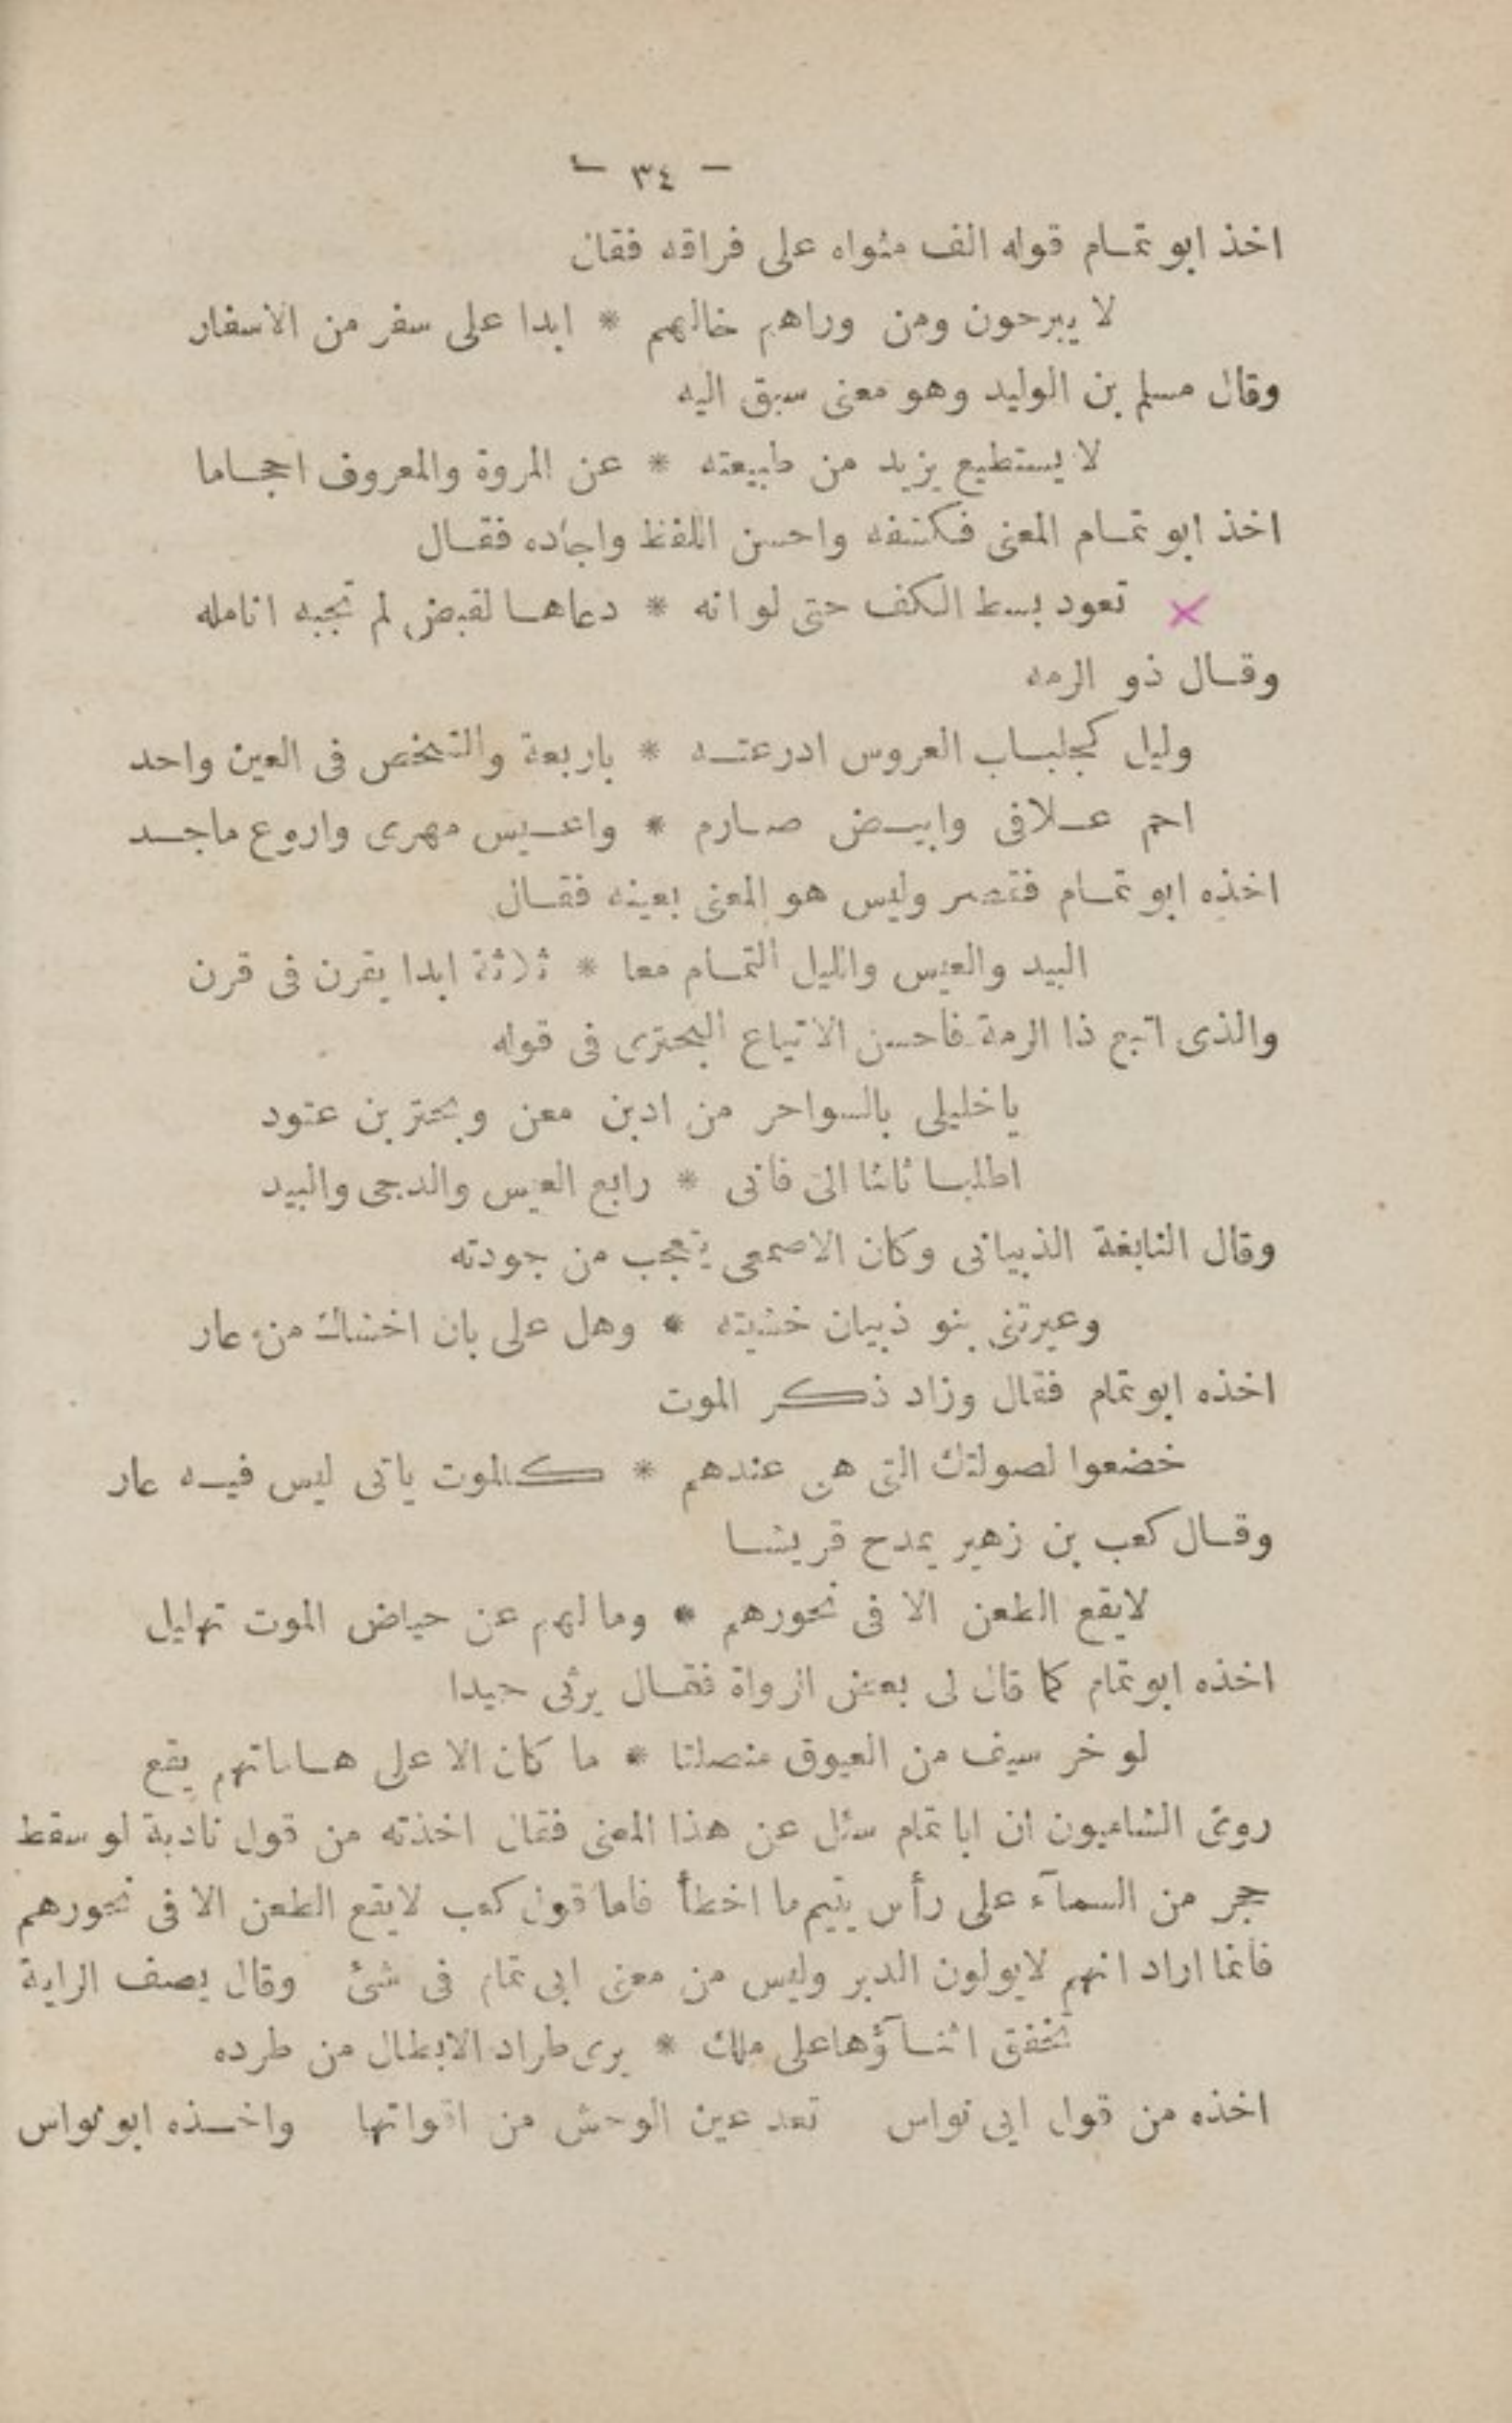 — ٣٤ —
اخذ ابو تمـام قوله الف مثواه على فراقه فقال
لا يبرحون ومن وراهم خالهم * ابدا على سفر من الاسفار
وقال مسلم بن الوليد وهو معنى سبق اليه
لا يستطيع يزيد من طبيعته * عن المروة والمعروف احجـاما
اخذ ابو تمـام المعنى فكشفه واحسن اللفظ واجاده فقـال
تعود بسط الكف حتى لو انه * دعاهـا لقبض لم تجبه انامله
وقـال ذو الرمه
وليل كجلبـاب العروس ادرعتـه * باربعة والشخص فى العين واحد
احم عـلافى وابيـض صـارم * واعـيس مهرى واروع ماجـد
اخذه ابو تمـام فقصر وليس هو المعنى بعينه فقـال
البيد والعيس والليل التمـام معا * ثلاثة ابدا يقرن فى قرن
والذى اتبع ذا الرمة فاحسن الاتباع البحترى فى قوله
ياخليلى بالسواحر من ادبن معن وبحتر بن عتود
اطلبـا ثالثا الى فانى * رابع العيس والدجى والبيد
وقال النابغة الذبيانى وكان الاصمعى يتعجب من جودته
وعيرتنى بنو ذبيان خشيته * وهل على بان اخشاك من عار
اخذه ابو تمام فقال وزاد ذكر الموت
خضعوا لصولتك التى هى عندهم * كالموت ياتى ليس فيـه عار
وقـال كعب بن زهير يمدح قريشـا
لايقع الطعن الا فى نحورهم * وما لهم عن حياض الموت تهليل
اخذه ابو تمام كما قال لى بعض الرواة فقـال يرثى حيدا
لو خر سيف من العيوق منصلتا * ما كان الا على هـاماتهم يقع
روى الشاميون ان ابا تمام سئل عن هذا المعنى فقال اخذته من قول نادبة لو سقط
حجر من السمآء على رأس يتيم ما اخطأ فاما قول كعب لايقع الطعن الا فى نحورهم
فانما اراد انهم لايولون الدبر وليس من معنى ابى تمام فى شئ وقال يصف الراية
تخفق اثنـآؤها على ملك * يرى طراد الابطال من طرده
اخذه من قول ابى نواس تعد عين الوحش من اقواتها واخـذه ابو نواس